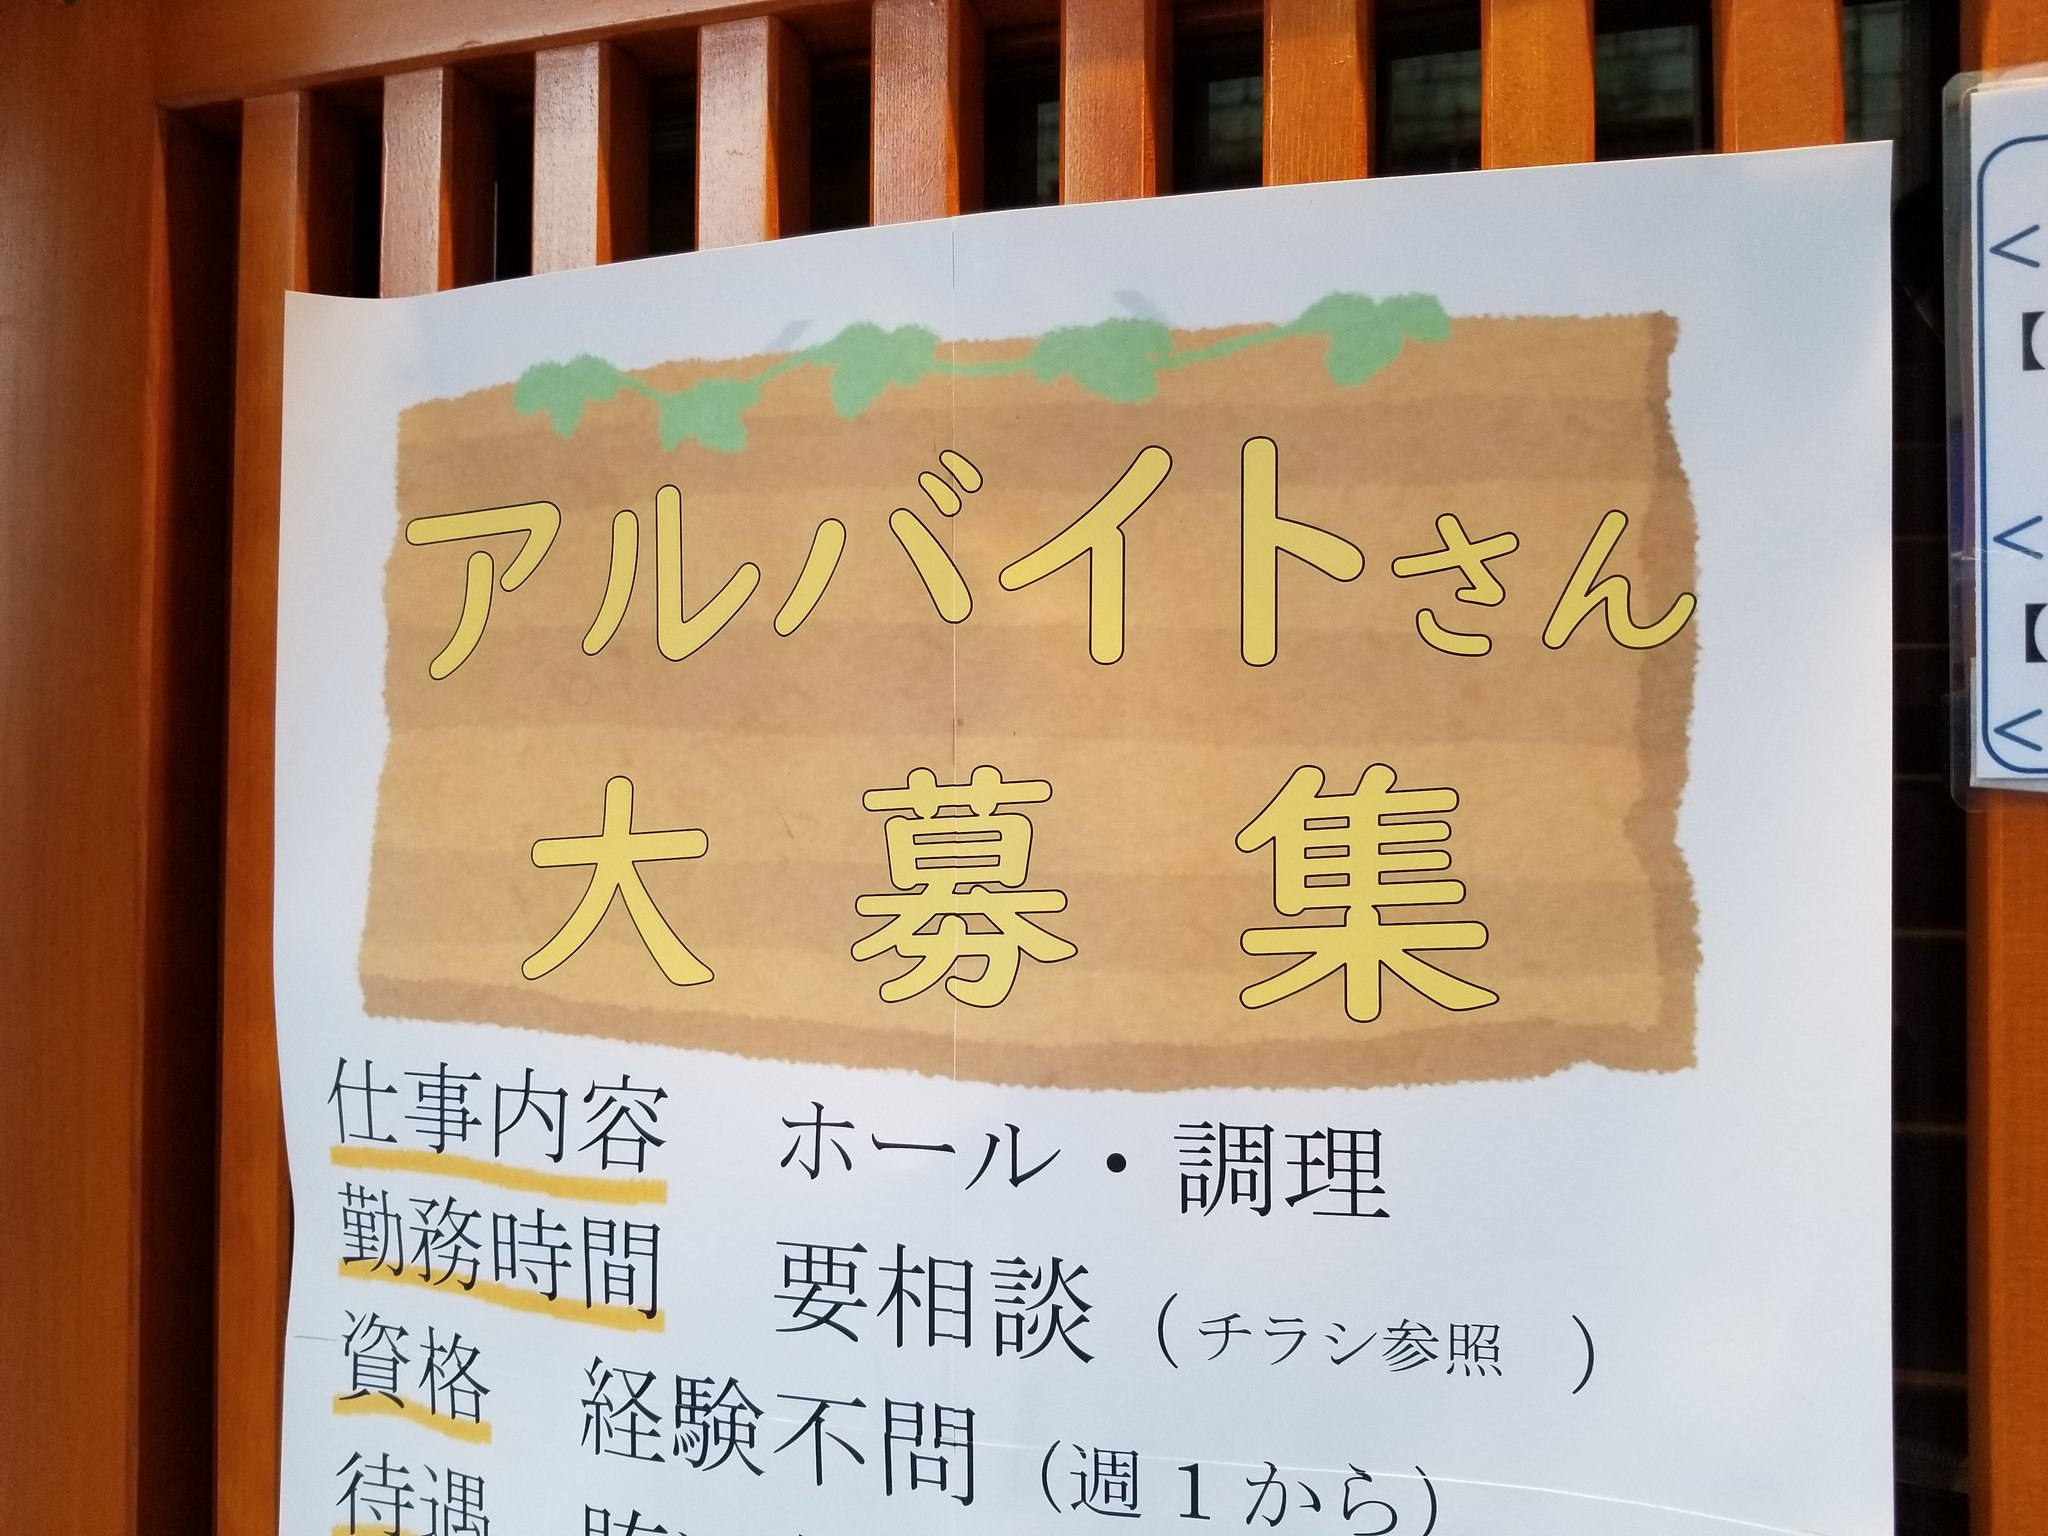 アルバイトさん
大募集
仕事内容 ホール・調理
勤務時間 要相談（チラシ参照 ）
資格 経験不問（週1から）
待遇